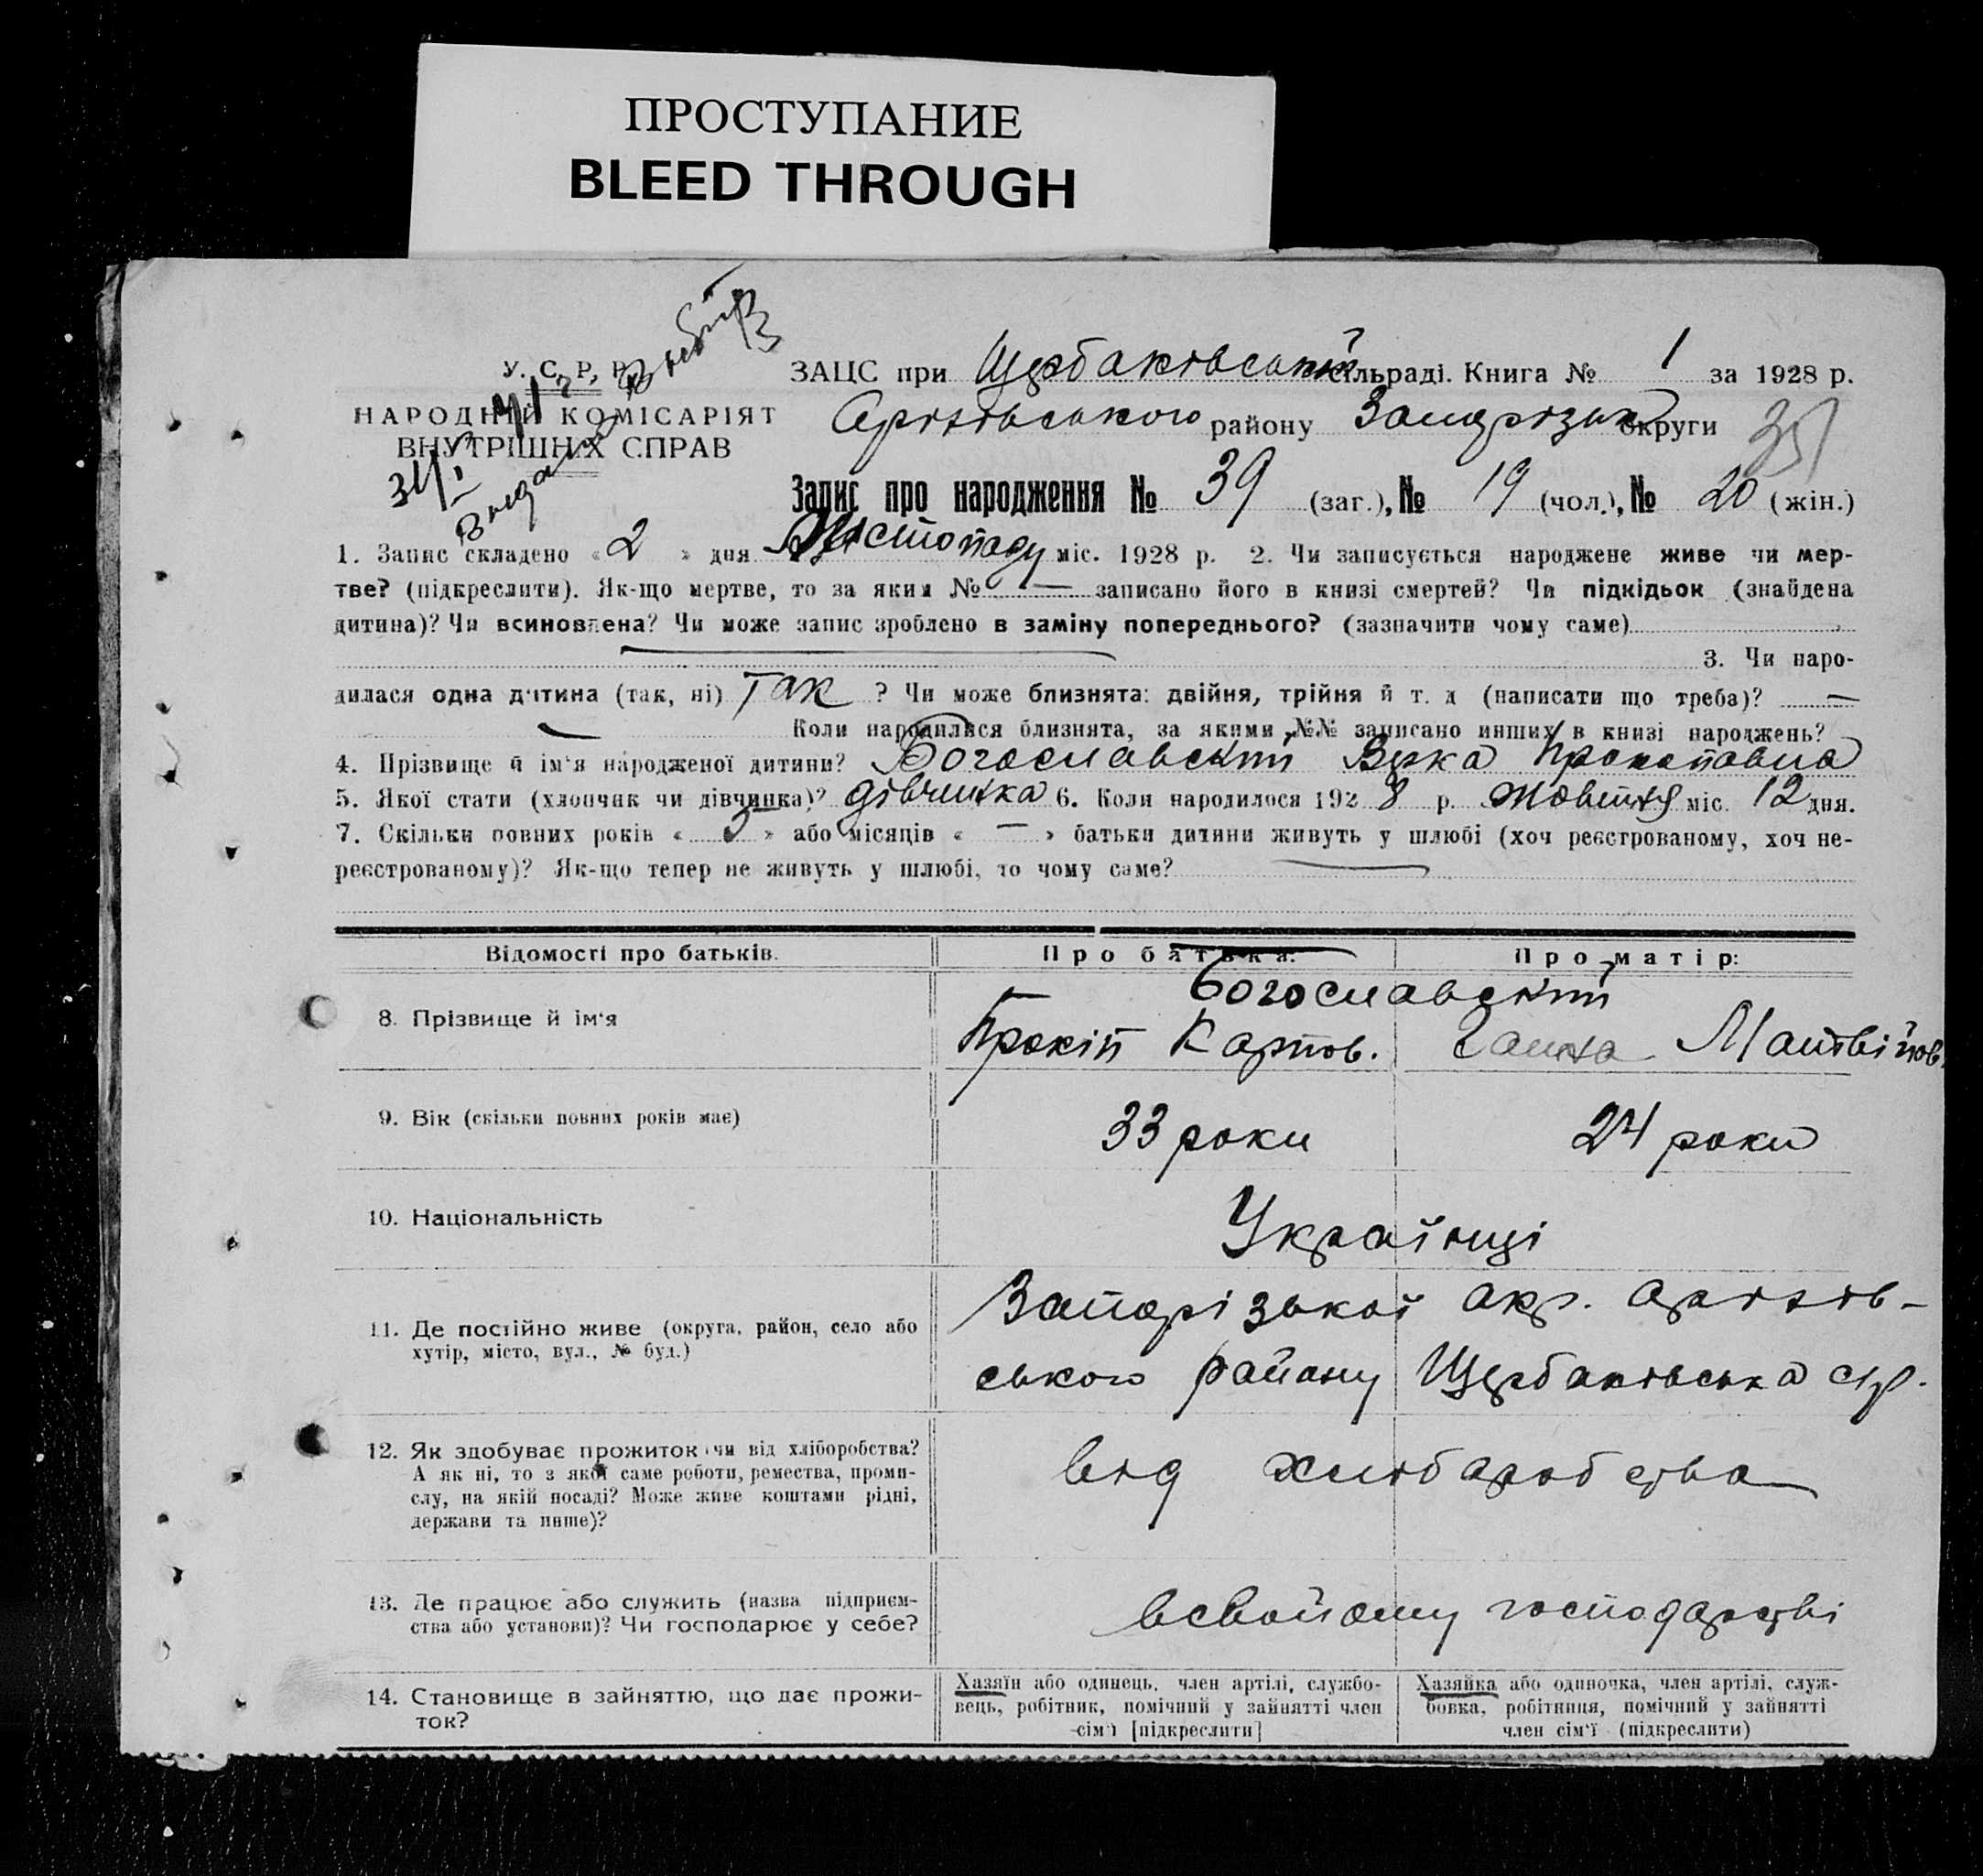 ПРОСТУПАНИЕ
BLEED THROUGH
У. С. Р. Р.
НАРОДНІЙ КОМІСАРІЯТ
ВНУТРІШНІХ СПРАВ
ЗАЦС при Щербаківській сільраді. Книга № 1 за 1928 р.
району Запорізьк округи 35
Запис про народження № 39 (заг.), № 19 (чол.), № 20 (жін.)
1. Запис складено « 2 » дня Листопаду міс. 1928 р. 2. Чи записується народжене живе чи мер-
тве? (підкреслити). Як-що мертве, то за яким № — записано його в книзі смертей? Чи підкідьок (знайдена
дитина)? Чи всиновлена? Чи може запис зроблено в заміну попереднього? (зазначити чому саме)
3. Чи наро-
дилася одна дитина (так, ні) Так ? Чи може близнята: двійня, трійня й т. д (написати що треба)? —
Коли народилися близнята, за якими №№ записано инших в книзі народжень?
4. Прізвище й ім'я народженої дитини? Богославскій Вєка Прокоповна
5. Якої стати (хлопчик чи дівчинка)? дівчинка 6. Коли народилося 1928 р. Жовтня міс. 12 дня.
7. Скільки повних років « 5 » або місяців « — » батьки дитини живуть у шлюбі (хоч реєстрованому, хоч не-
реєстрованому)? Як-що тепер не живуть у шлюбі, то чому саме? —
Відомості про батьків. Про батька: Про матір:
Богославскій
8. Прізвище й ім'я Прокіп Карпов. Ганна Матвійов.
9. Вік (скільки повних років має) 33 роки 24 роки
10. Національність Українці
11. Де постійно живе (округа, район, село або
хутір, місто, вул., № буд.)
Запорізької окр. Оріхів-
ського району Щербаківська с/р.
12. Як здобуває прожиток чи від хліборобства?
А як ні, то з якої саме роботи, ремества, проми-
слу, на якій посаді? Може живе коштами рідні,
держави та инше)?
від хліборобства
13. Де працює або служить (назва підприєм-
ства або установи)? Чи господарює у себе?
всвойому господарстві
14. Становище в зайняттю, що дає прожи-
ток?
Хазяїн або одинець, член артілі, службо-
вець, робітник, помічний у зайнятті член
сім'ї [підкреслити]
Хазяйка або одиночка, член артілі, служ-
бовка, робітниця, помічний у зайнятті
член сім'ї (підкреслити)